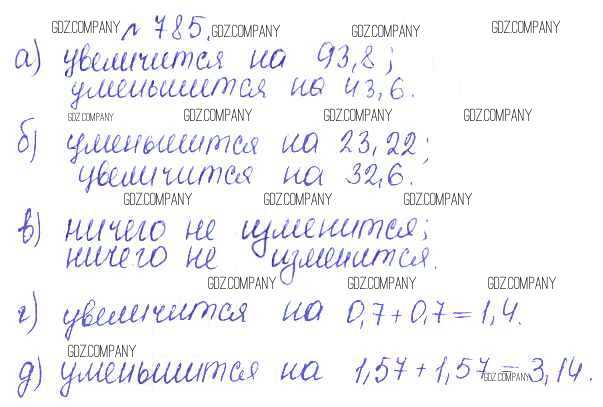 GDZ.COMPANY № 785. GDZ.COMPANY GDZ.COMPANY GDZ.COMPANY
а) увеличится на 93,8;
уменьшится на 43,6.
GDZ.COMPANY GDZ.COMPANY GDZ.COMPANY GDZ.COMPANY
б) уменьшится на 23,22;
увеличится на 32,6.
GDZ.COMPANY GDZ.COMPANY GDZ.COMPANY
в) ничего не изменится;
ничего не изменится.
GDZ.COMPANY GDZ.COMPANY GDZ.COMPANY
г) увеличится на 0,7 + 0,7 = 1,4.
GDZ.COMPANY
д) уменьшится на 1,57 + 1,57 = 3,14.
GDZ.COMPANY